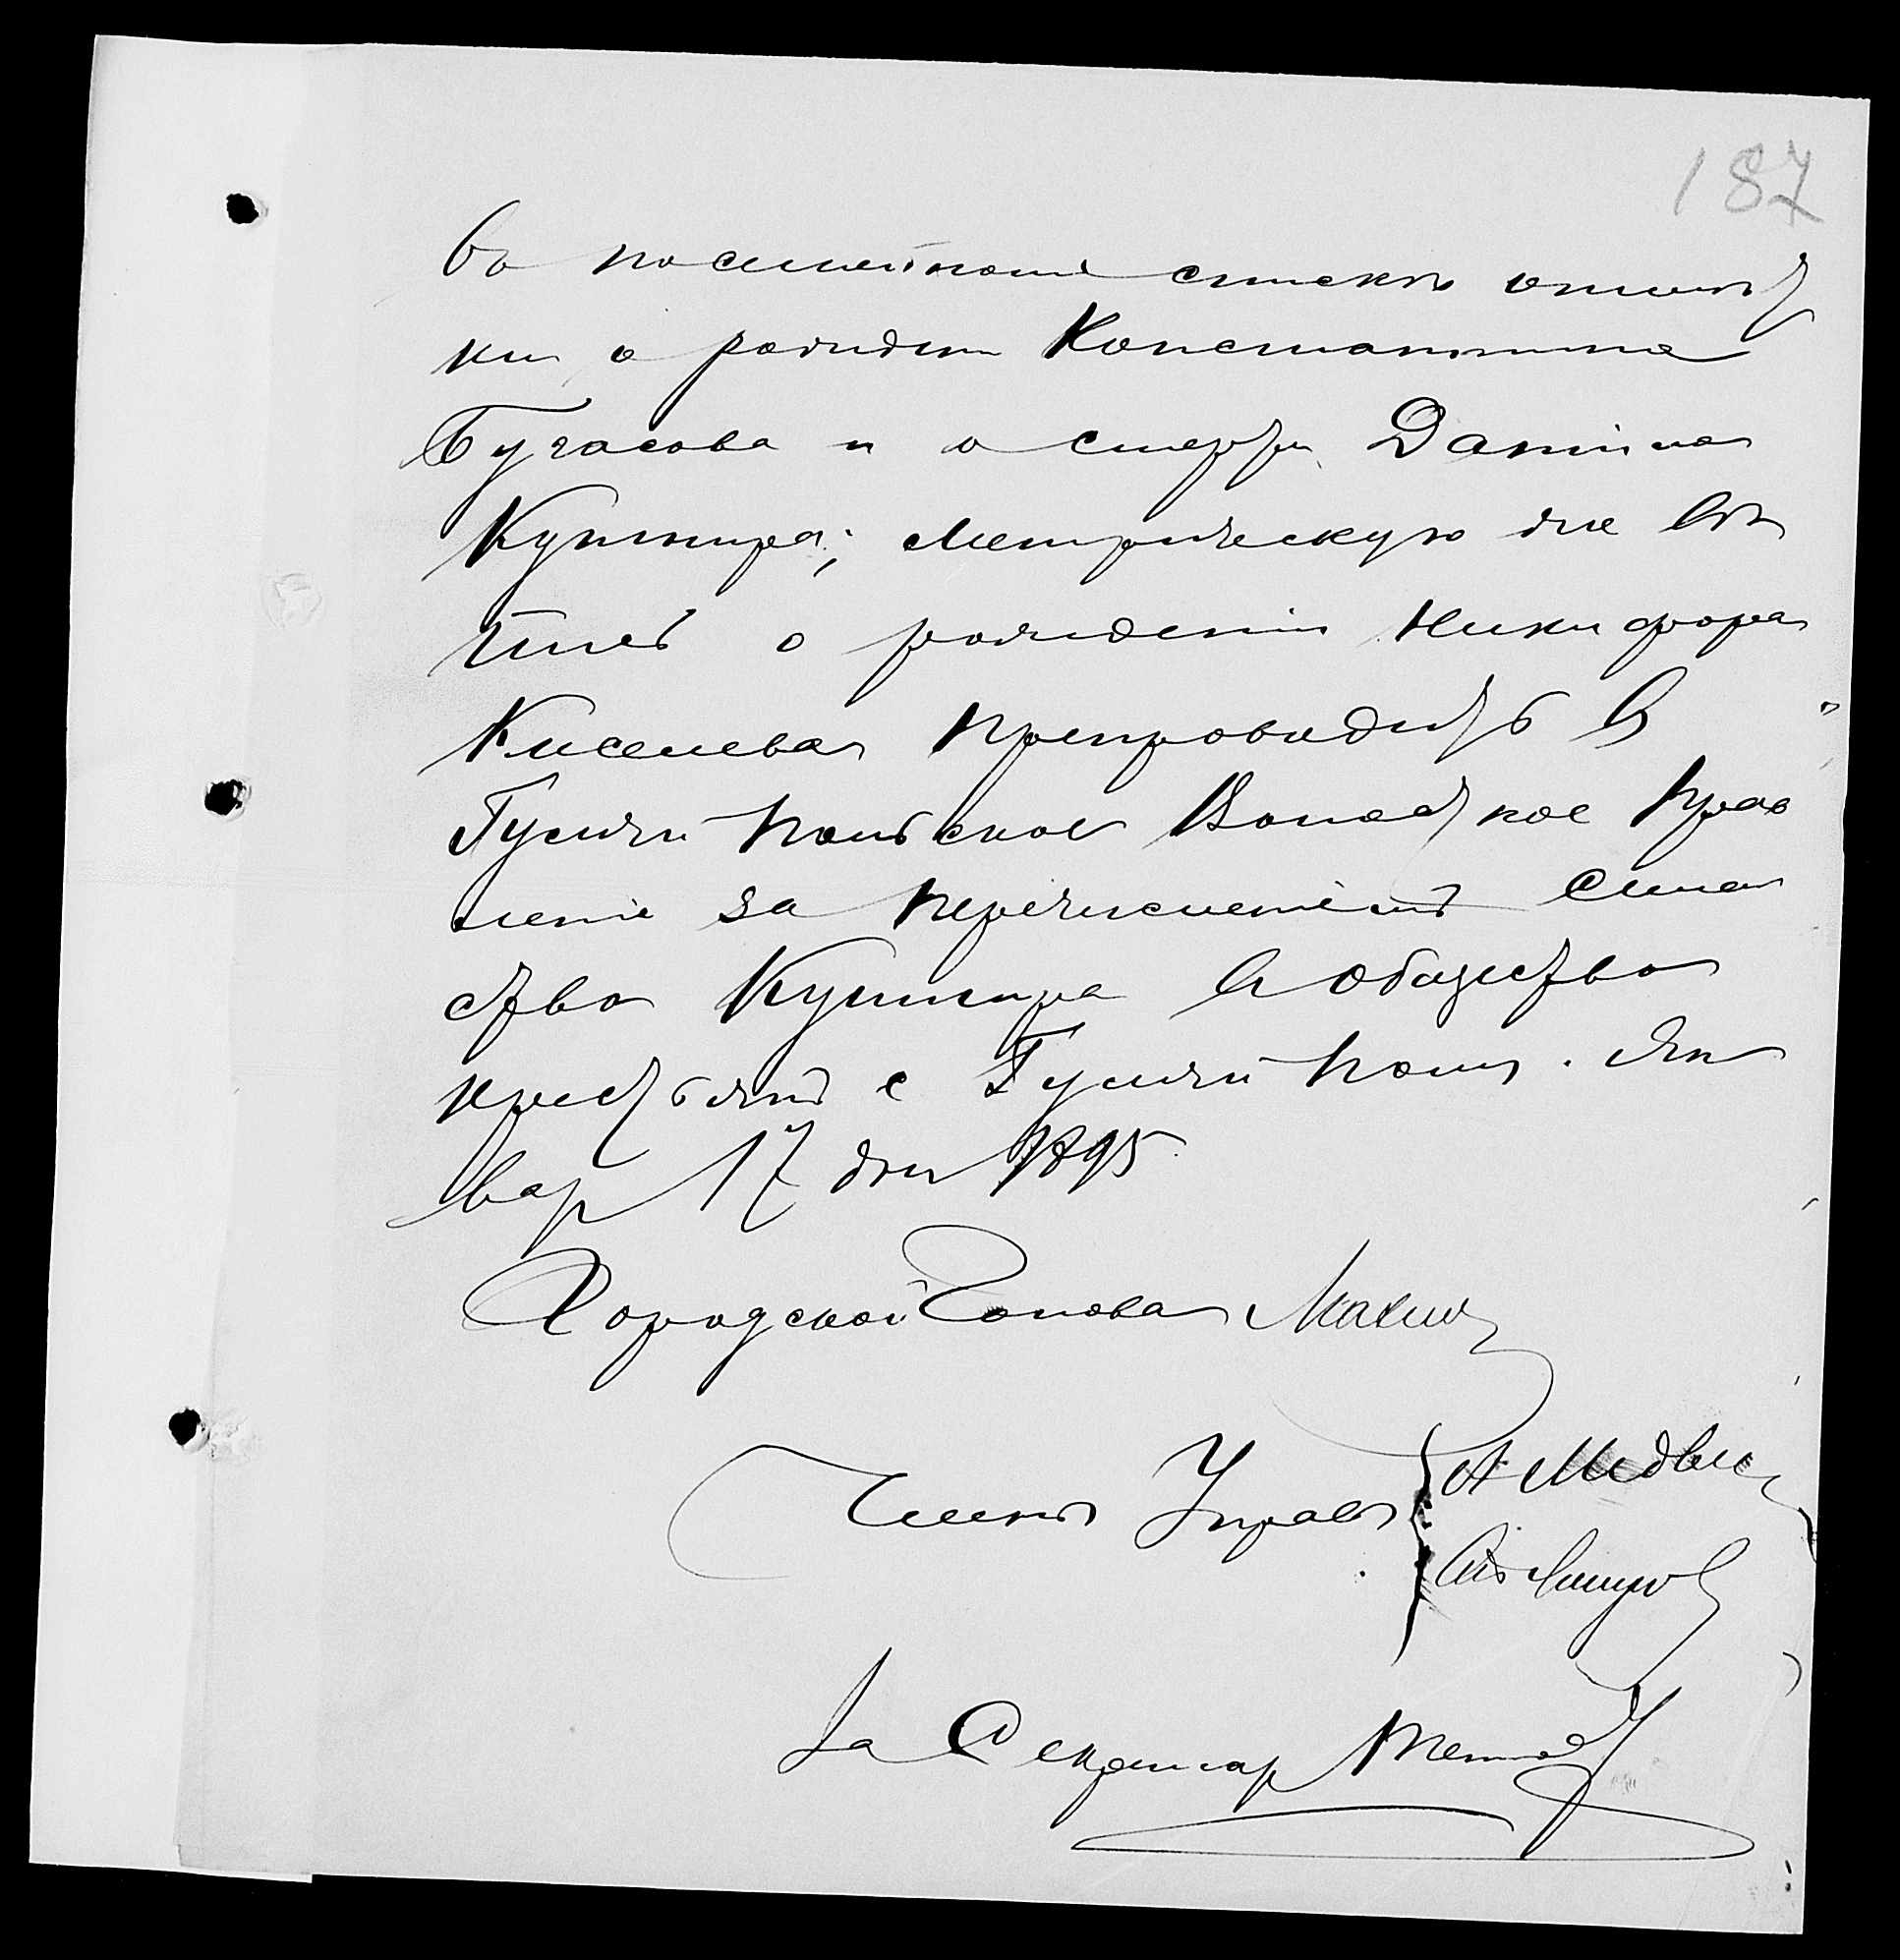 187
въ посемейномъ спискѣ отмѣт
ки о рожденіи Константина
Бугасова и о смерти Даніила
Кушнира; Метрическую же вы
пись о рожденіи Никифора
Киселева препроводить въ
Гуляй-Польское Волостное Прав
леніе за перечисленіемъ семей
ства Кушнира въ общество
крестьянъ с. Гуляй-Поля. Ян
вар 17 дня 1895
Городской Голова
Члены Управы А Медвед
За Секретаря